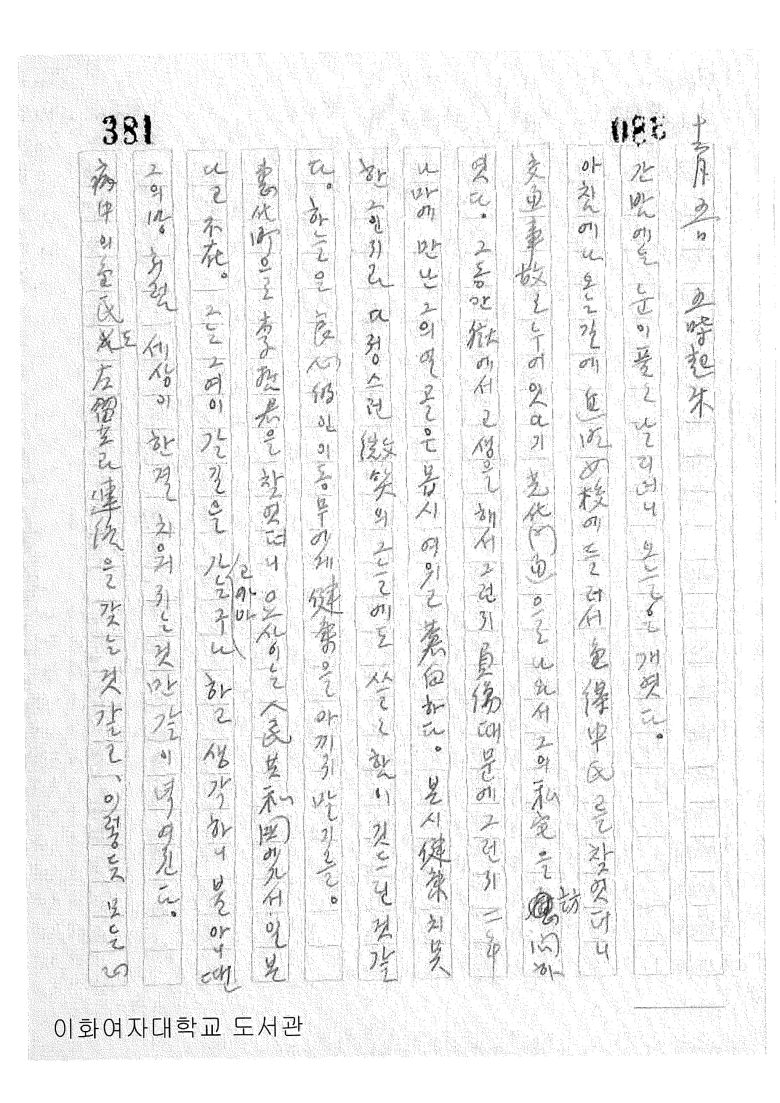 381
380
十二月 五日 五時起床
간밤에는 눈이 풀풀 날리더니 오늘은 개였다.
아침에 나오는 길에 女校에 들려서 金 中民를 찾엇더니
交通事故로 누어잇다기 光化門通으로 나와서 그의 私宅을 訪問하
엿다. 그동안 獄에서 고생을 해서 그런지 負傷때문에 그런지 二年
나마에 만난 그의 얼골은 몹시 여위고 蒼白하다. 본시 健康치 못
한 그인지라 다정스런 微笑의 그늘에도 쓸쓸함이 깃드린 것 같
다. 하늘은 良心的인 이 동무에게 健康을 아끼지 말기를.
惠化町으로 李 君을 찾엇더니 요사이는 人民共和國에 가서 일 본
다고 不在. 그는 그여이 갈 길을 가는구나 (고마마) 하고 생각하니 불 아니 땐
그의 방처럼 세상이 한결 치워지는 것만 같이 역여진다.
病中의 金民도 左 와 連絡을 갖는 것 같고, 이렇듯 모든
이화여자대학교 도서관